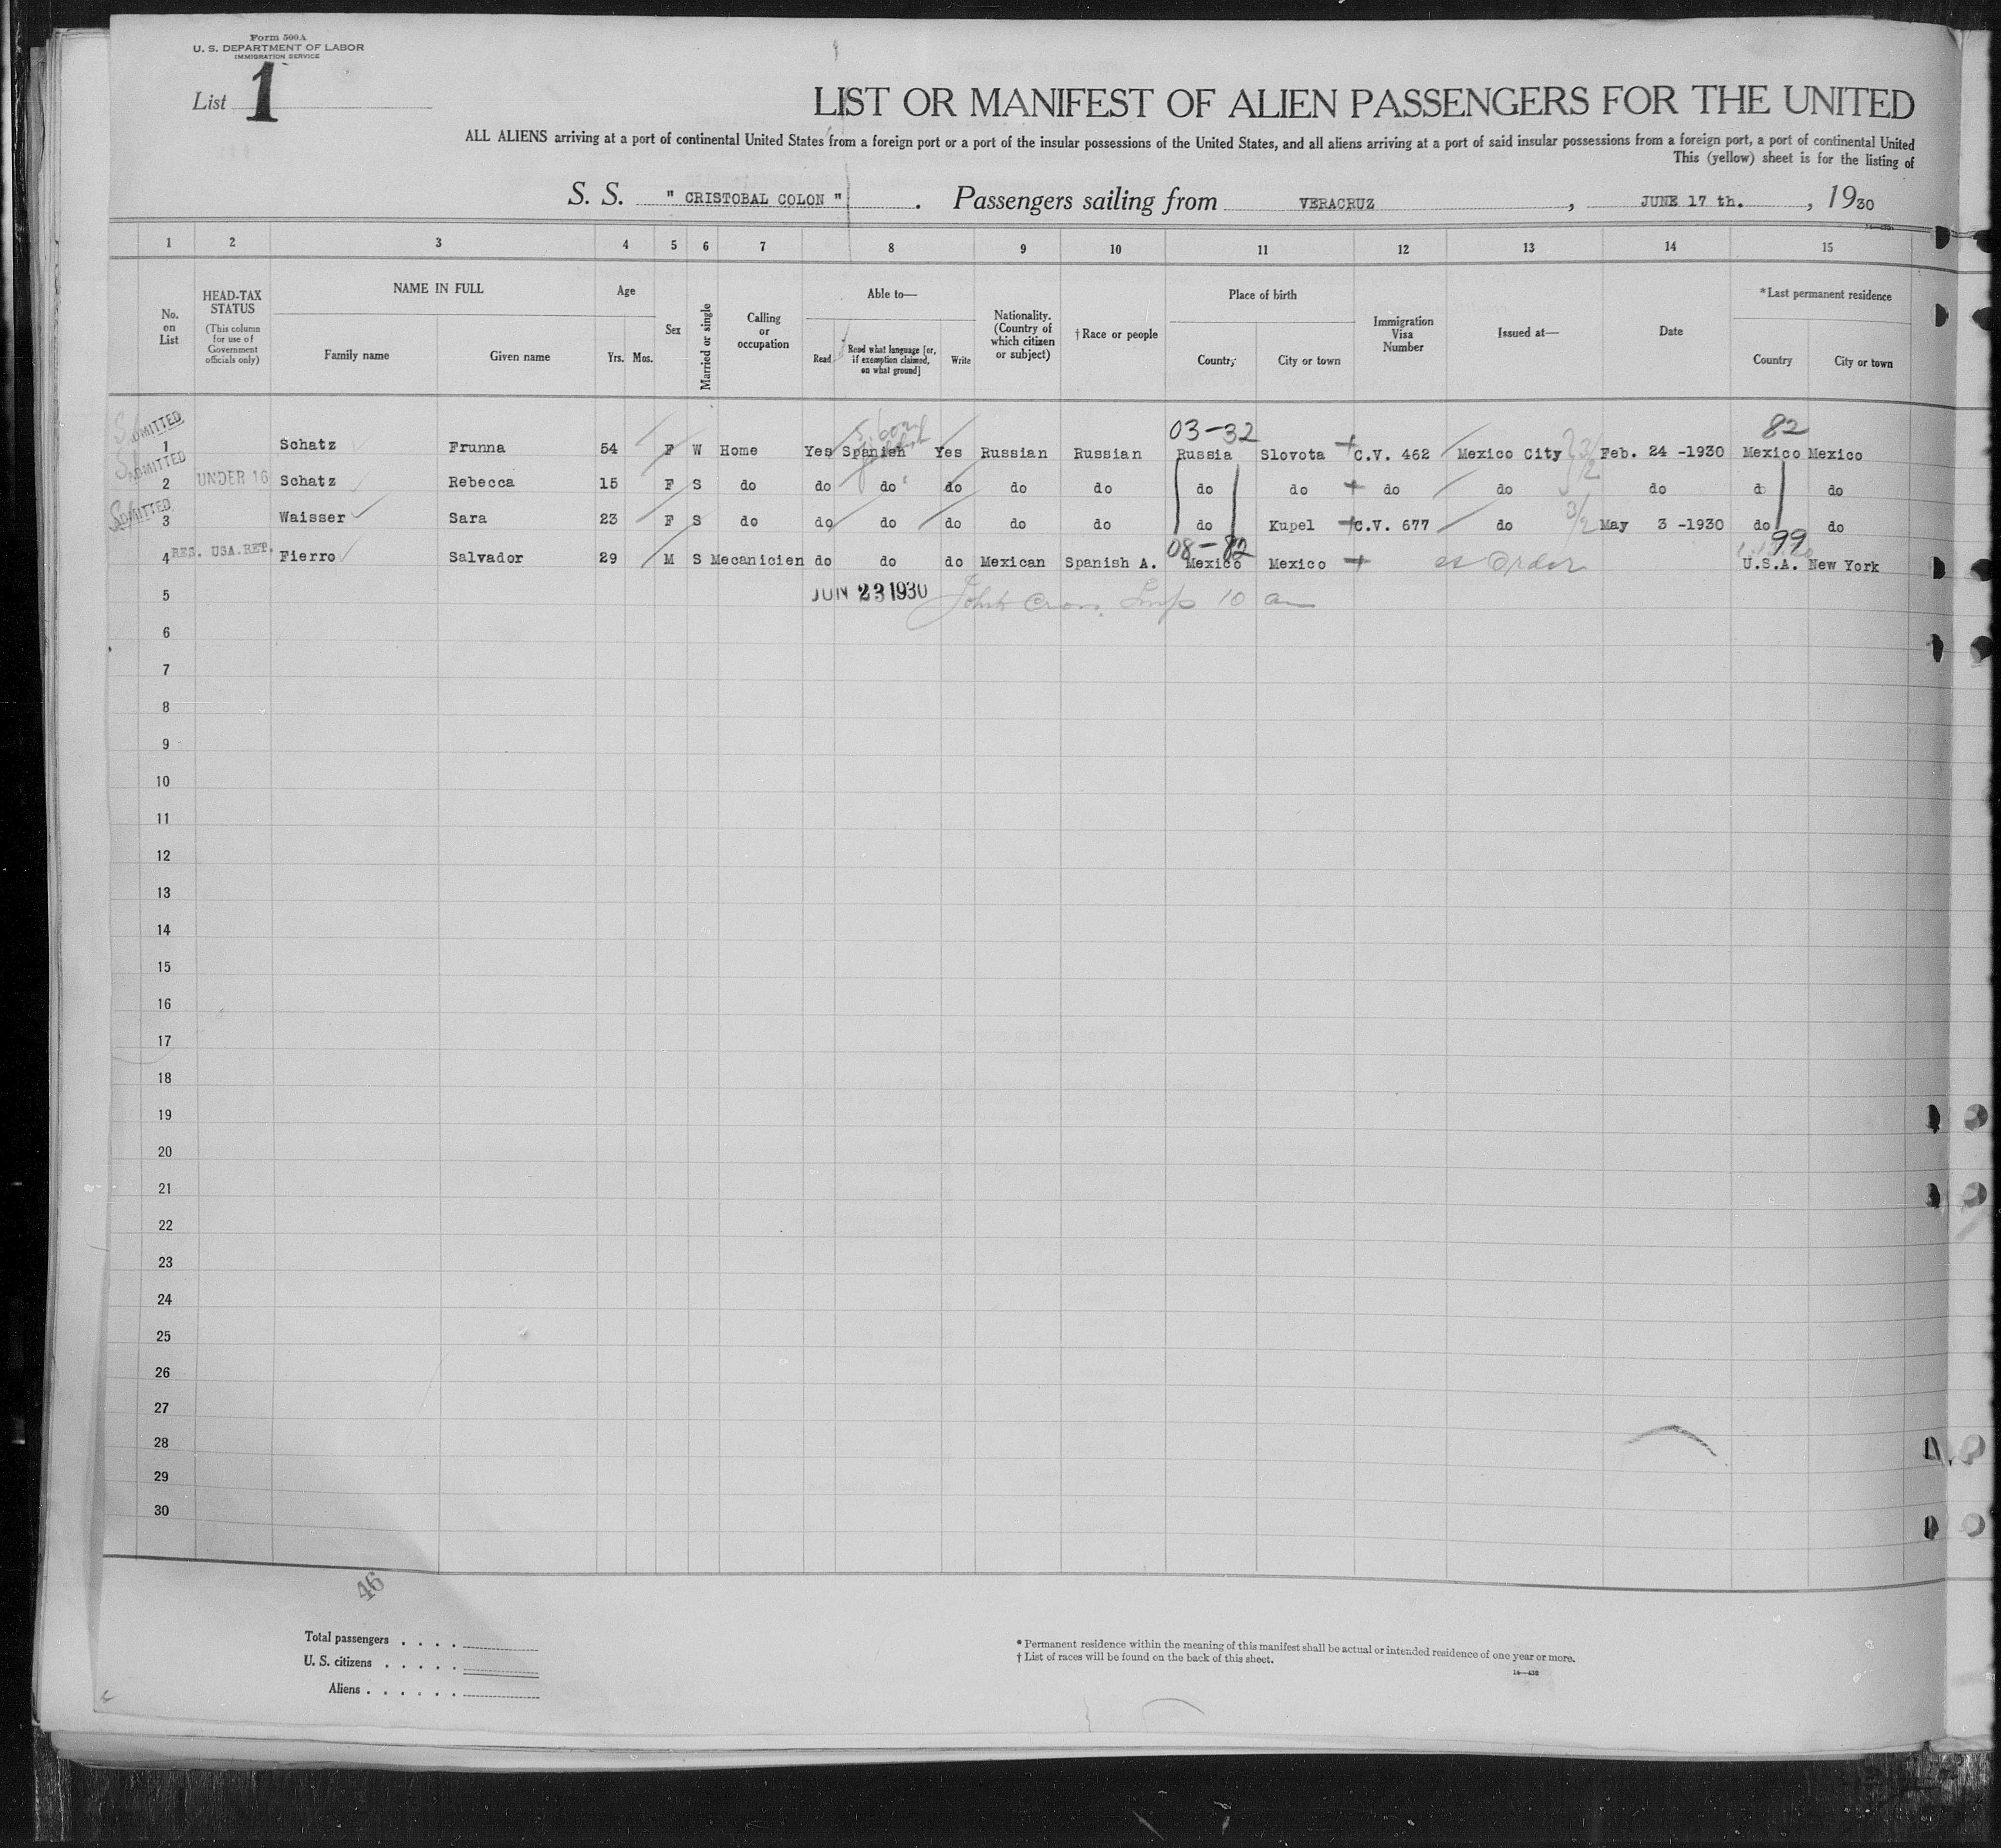 Form 500A
U. S. DEPARTMENT OF LABOR
IMMIGRATION SERVICE
List 1
LIST OR MANIFEST OF ALIEN PASSENGERS FOR THE UNITED
ALL ALIENS arriving at a port of continental United States from a foreign port or a port of the insular possessions of the United States, and all aliens arriving at a port of said insular possessions from a foreign port, a port of continental United
This (yellow) sheet is for the listing of
S. S. " CRISTOBAL COLON " . Passengers sailing from VERACRUZ , JUNE 17 th. , 1930
1 2 3 4 5 6 7 8 9 10 11 12 13 14 15
No. on List
HEAD-TAX STATUS (This column for use of Government officials only)
NAME IN FULL
Family name Given name
Age
Yrs. Mos.
Sex
Married or single
Calling or occupation
Able to—
Read Read what language [or, if exemption claimed, on what ground] Write
Nationality. (Country of which citizen or subject)
†Race or people
Place of birth
Country City or town
Immigration Visa Number
Issued at—
Date
*Last permanent residence
Country City or town
03-32 82
ADMITTED 1 Schatz Frunna 54 F W Home Yes Spanish Yes Russian Russian Russia Slovota C.V. 462 Mexico City Feb. 24 -1930 Mexico Mexico
ADMITTED 2 UNDER 16 Schatz Rebecca 15 F S do do do do do do do do do do do do do
ADMITTED 3 Waisser Sara 23 F S do do do do do do do Kupel C.V. 677 do May 3 -1930 do do
08-82 99
4 RES. USA.RET. Fierro Salvador 29 M S Mecanicien do do do Mexican Spanish A. Mexico Mexico U.S.A. New York
5 JUN 23 1930 10 am
6
7
8
9
10
11
12
13
14
15
16
17
18
19
20
21
22
23
24
25
26
27
28
29
30
46
Total passengers . . . .
U. S. citizens . . . . .
Aliens . . . . . .
* Permanent residence within the meaning of this manifest shall be actual or intended residence of one year or more.
† List of races will be found on the back of this sheet.